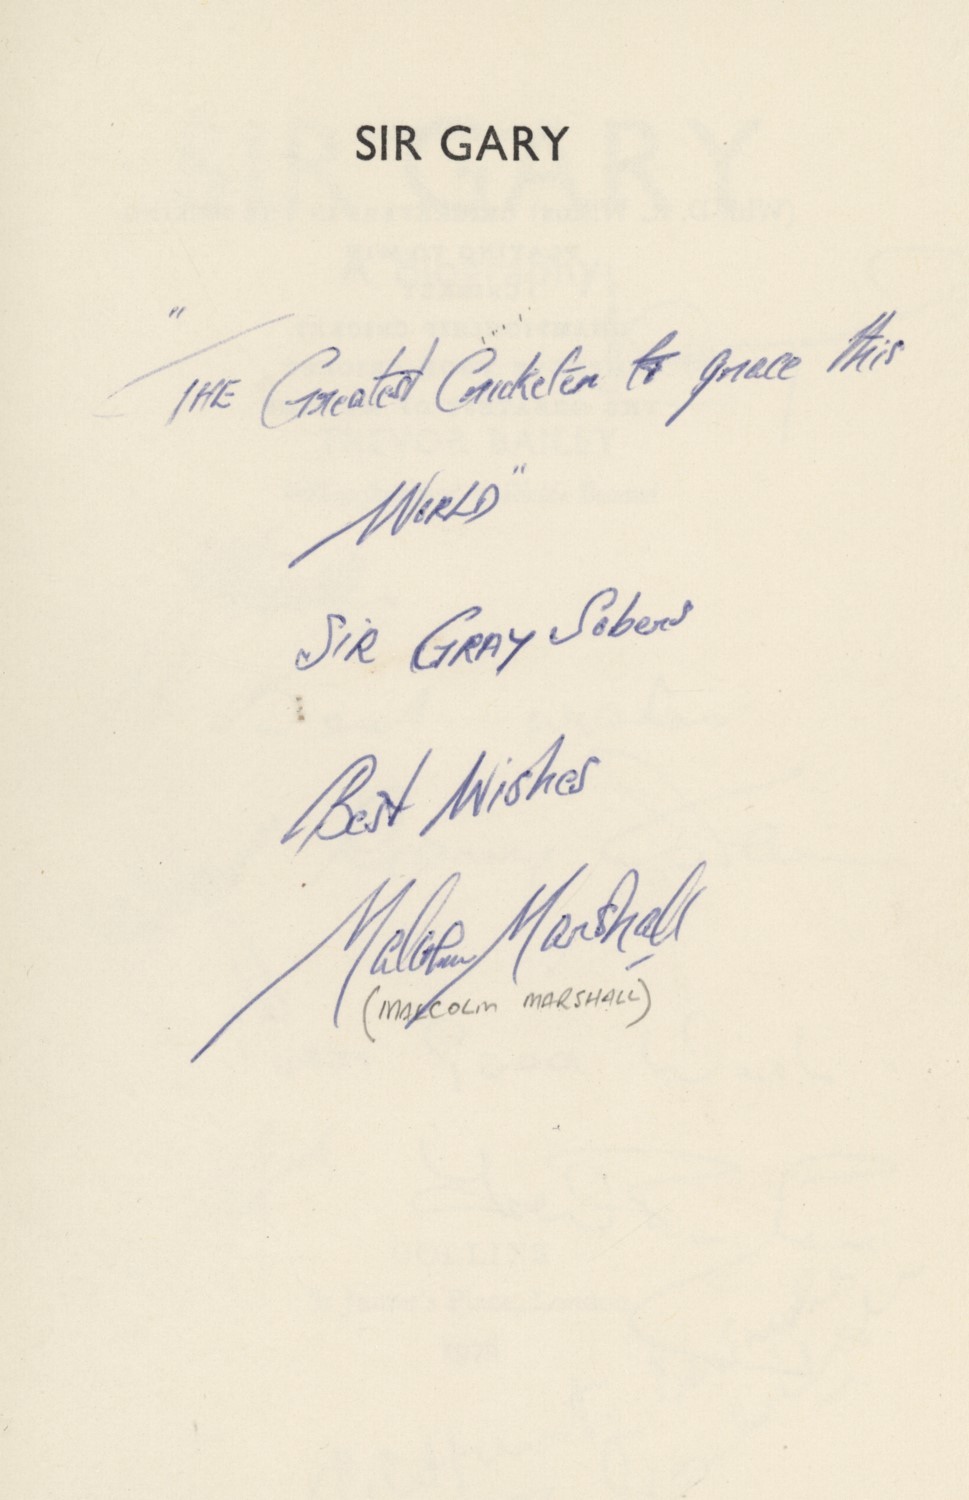 SIR GARY
"THE Greatest Cricketer to grace this
WORLD"
SIR GRAY Sobers
Best Wishes
Malcolm Marshall
(MALCOLM MARSHALL)